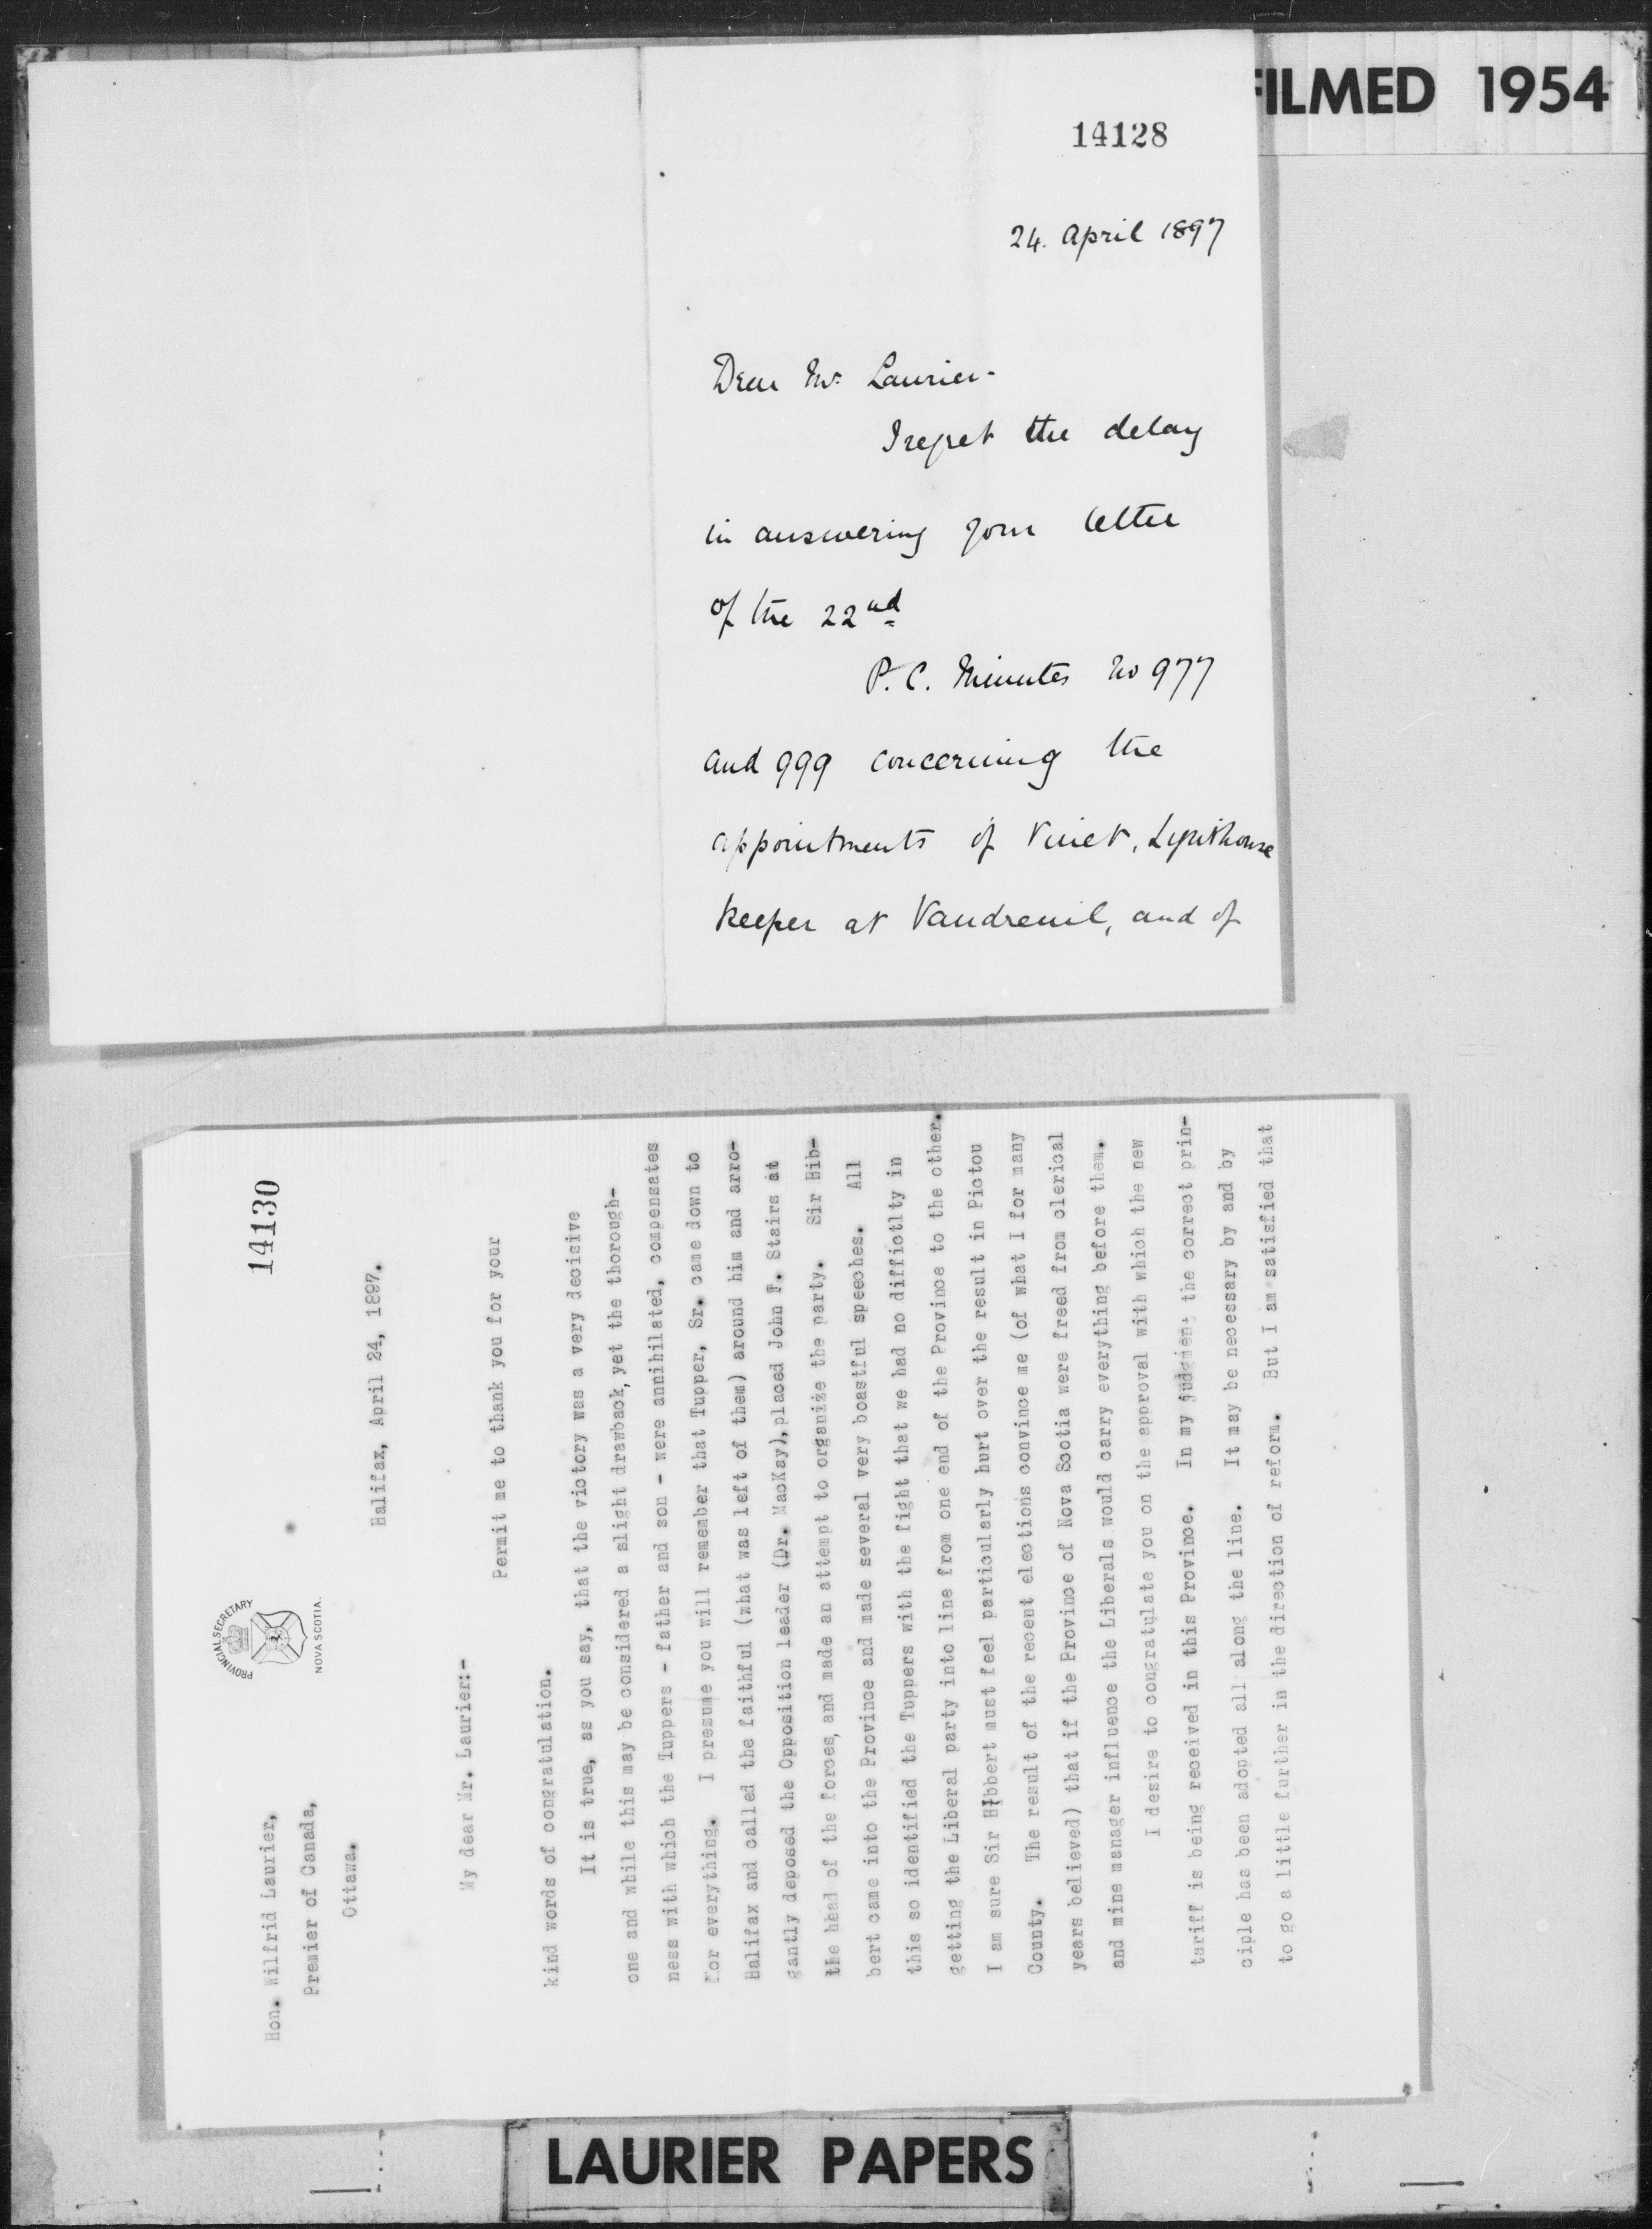 FILMED 1954
14128
24. April 1897
Dear Mr. Laurier-
I regret the delay
in answering your letter
of the 22nd
P. C. Minutes No 977
and 999 concerning the
appointments of Vinet, Lighthouse
keeper at Vaudreuil, and of
14130
PROVINCIAL SECRETARY
NOVA SCOTIA.
Halifax, April 24, 1897.
Hon. Wilfrid Laurier,
Premier of Canada,
Ottawa.
My dear Mr. Laurier:-
Permit me to thank you for your
kind words of congratulation.
It is true, as you say, that the victory was a very decisive
one and while this may be considered a slight drawback, yet the thorough-
ness with which the Tuppers - father and son - were annihilated, compensates
for everything. I presume you will remember that Tupper, Sr. came down to
Halifax and called the faithful (what was left of them) around him and arro-
gantly deposed the Opposition leader (Dr. MacKay), placed John F. Stairs at
the head of the forces, and made an attempt to organize the party. Sir Hib-
bert came into the Province and made several very boastful speeches. All
this so identified the Tuppers with the fight that we had no difficlty in
getting the Liberal party into line from one end of the Province to the other.
I am sure Sir Hibbert must feel particularly hurt over the result in Pictou
County. The result of the recent elections convince me (of what I for many
years believed) that if the Province of Nova Scotia were freed from clerical
and mine manager influence the Liberals would carry everything before them.
I desire to congratulate you on the approval with which the new
tariff is being received in this Province. In my judgment the correct prin-
ciple has been adopted all along the line. It may be necessary by and by
to go a little further in the direction of reform. But I am satisfied that
LAURIER PAPERS